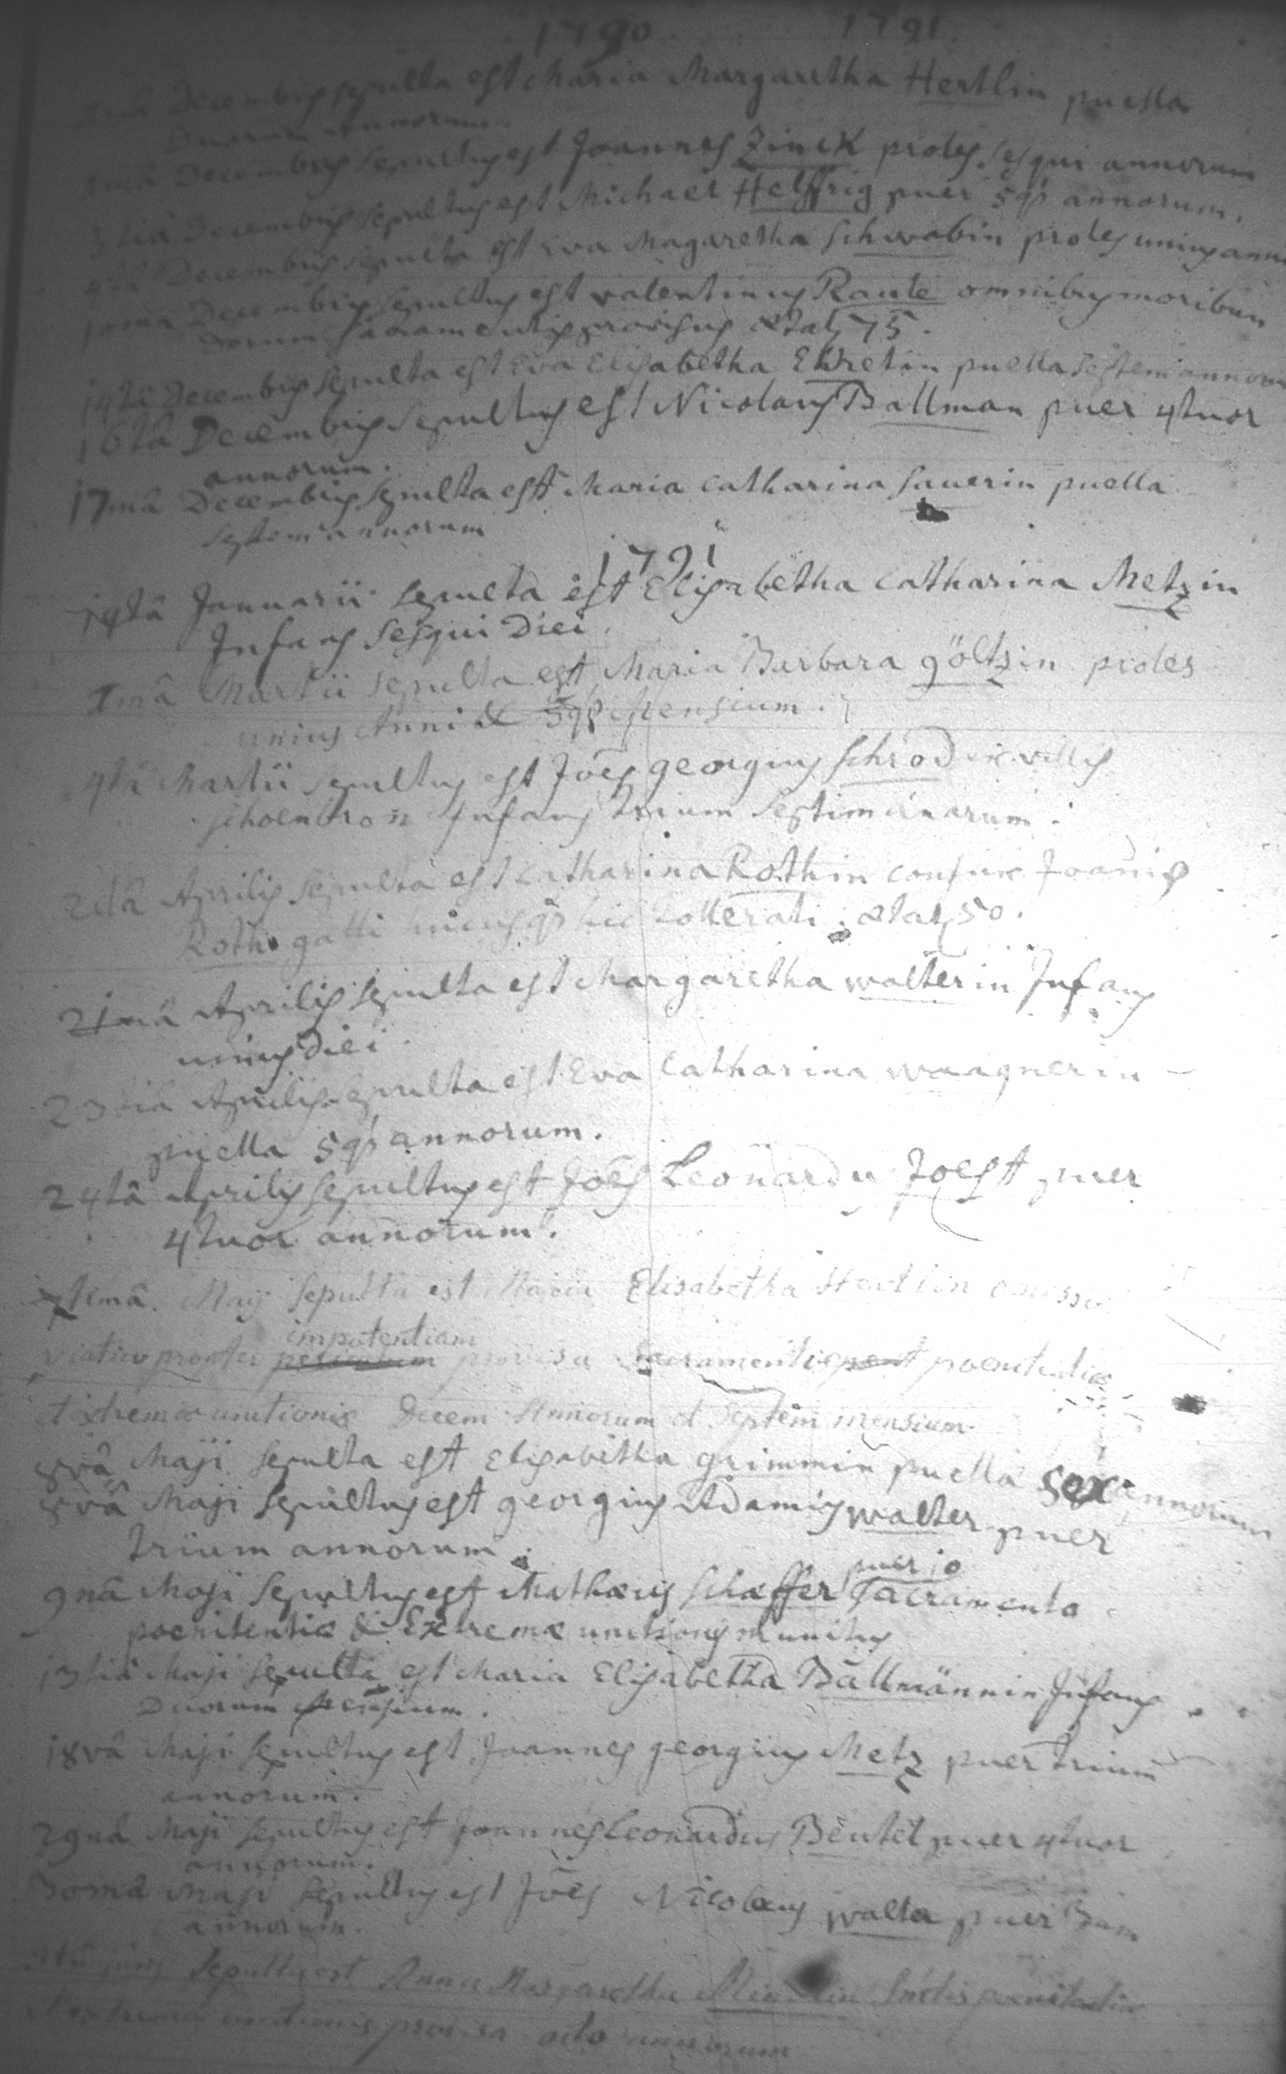 1790 1791
Decembris sepulta est Maria Margaretha Hertlin puella
Duorum Annorum.
Decembris sepultus est Joannes Zinck proles sesqui annorum
3tia Decembris sepultus est Michael Helffrig puer 5q annorum.
Decembris sepulta est Eva Magaretha Schwabin proles unius anni
10mâ Decembris sepultus est valentinus Raute omnibus moribun
dorum sacramentis provisus ætat 75.
14tâ Decembris sepulta est Eva Elisabetha puella septem annorum
16tâ Decembris sepultus est Nicolaus Ballman puer 4tuor
annorum.
17mâ Decembris sepulta est Maria Catharina Sauerin puella
septem annorum
1791
19tâ Januarii sepulta est Elisabetha Catharina Metzin
Infans sesqui Diei.
1mâ Martii sepulta est Maria Barbara göltzin proles
unius Anni & 5q Mensium.
4tâ Martii sepultus est Joês georgius Schrod ex villis
schoenbron Infans trium septimanarum.
2dâ Aprilis sepulta est Catharina Rothin conjux Joannis
Roth hic tollerati ætat 50.
21mâ Aprilis sepulta est Margaretha walterin Infans
unius Diei.
23tiâ Aprilis sepulta est Eva Catharina waagnerin
puella 5q annorum.
24tâ Aprilis sepultus est Joês Leonardus Joest puer
4tuor annorum.
7timâ. Maÿ sepulta est Maria Elisabetha Hertlin omisso
impotentiam
viatico propter provisa Sacramentis poenitentiæ
et extremæ unctionis Decem Annorum et septem mensium
8vâ Maji sepulta est Elisabetha grimmin puella sex annorum
8vâ Maji sepultus est georgius Adamus walter puer
trium annorum.
puer 10
9nâ Maji sepultus est Mathæus Schæffer Sacramento
poenitentiæ & Extremæ unctionis munitus
13tiâ Maji sepulta est Maria Elisabetha Ballmännin Infans
Duorum Mensium.
18vâ Maji sepultus est Joannes georgius Metz puer trium
annorum.
29nâ Maji sepultus est Joannes Leonardus Beutel puer 4tuor
annorum.
30mâ Maji sepultus est Joês Nicolaus walter puer
annorum.
sepulta est Anna Margaretha poenitentiæ
extremæ unctionis provisa octo annorum